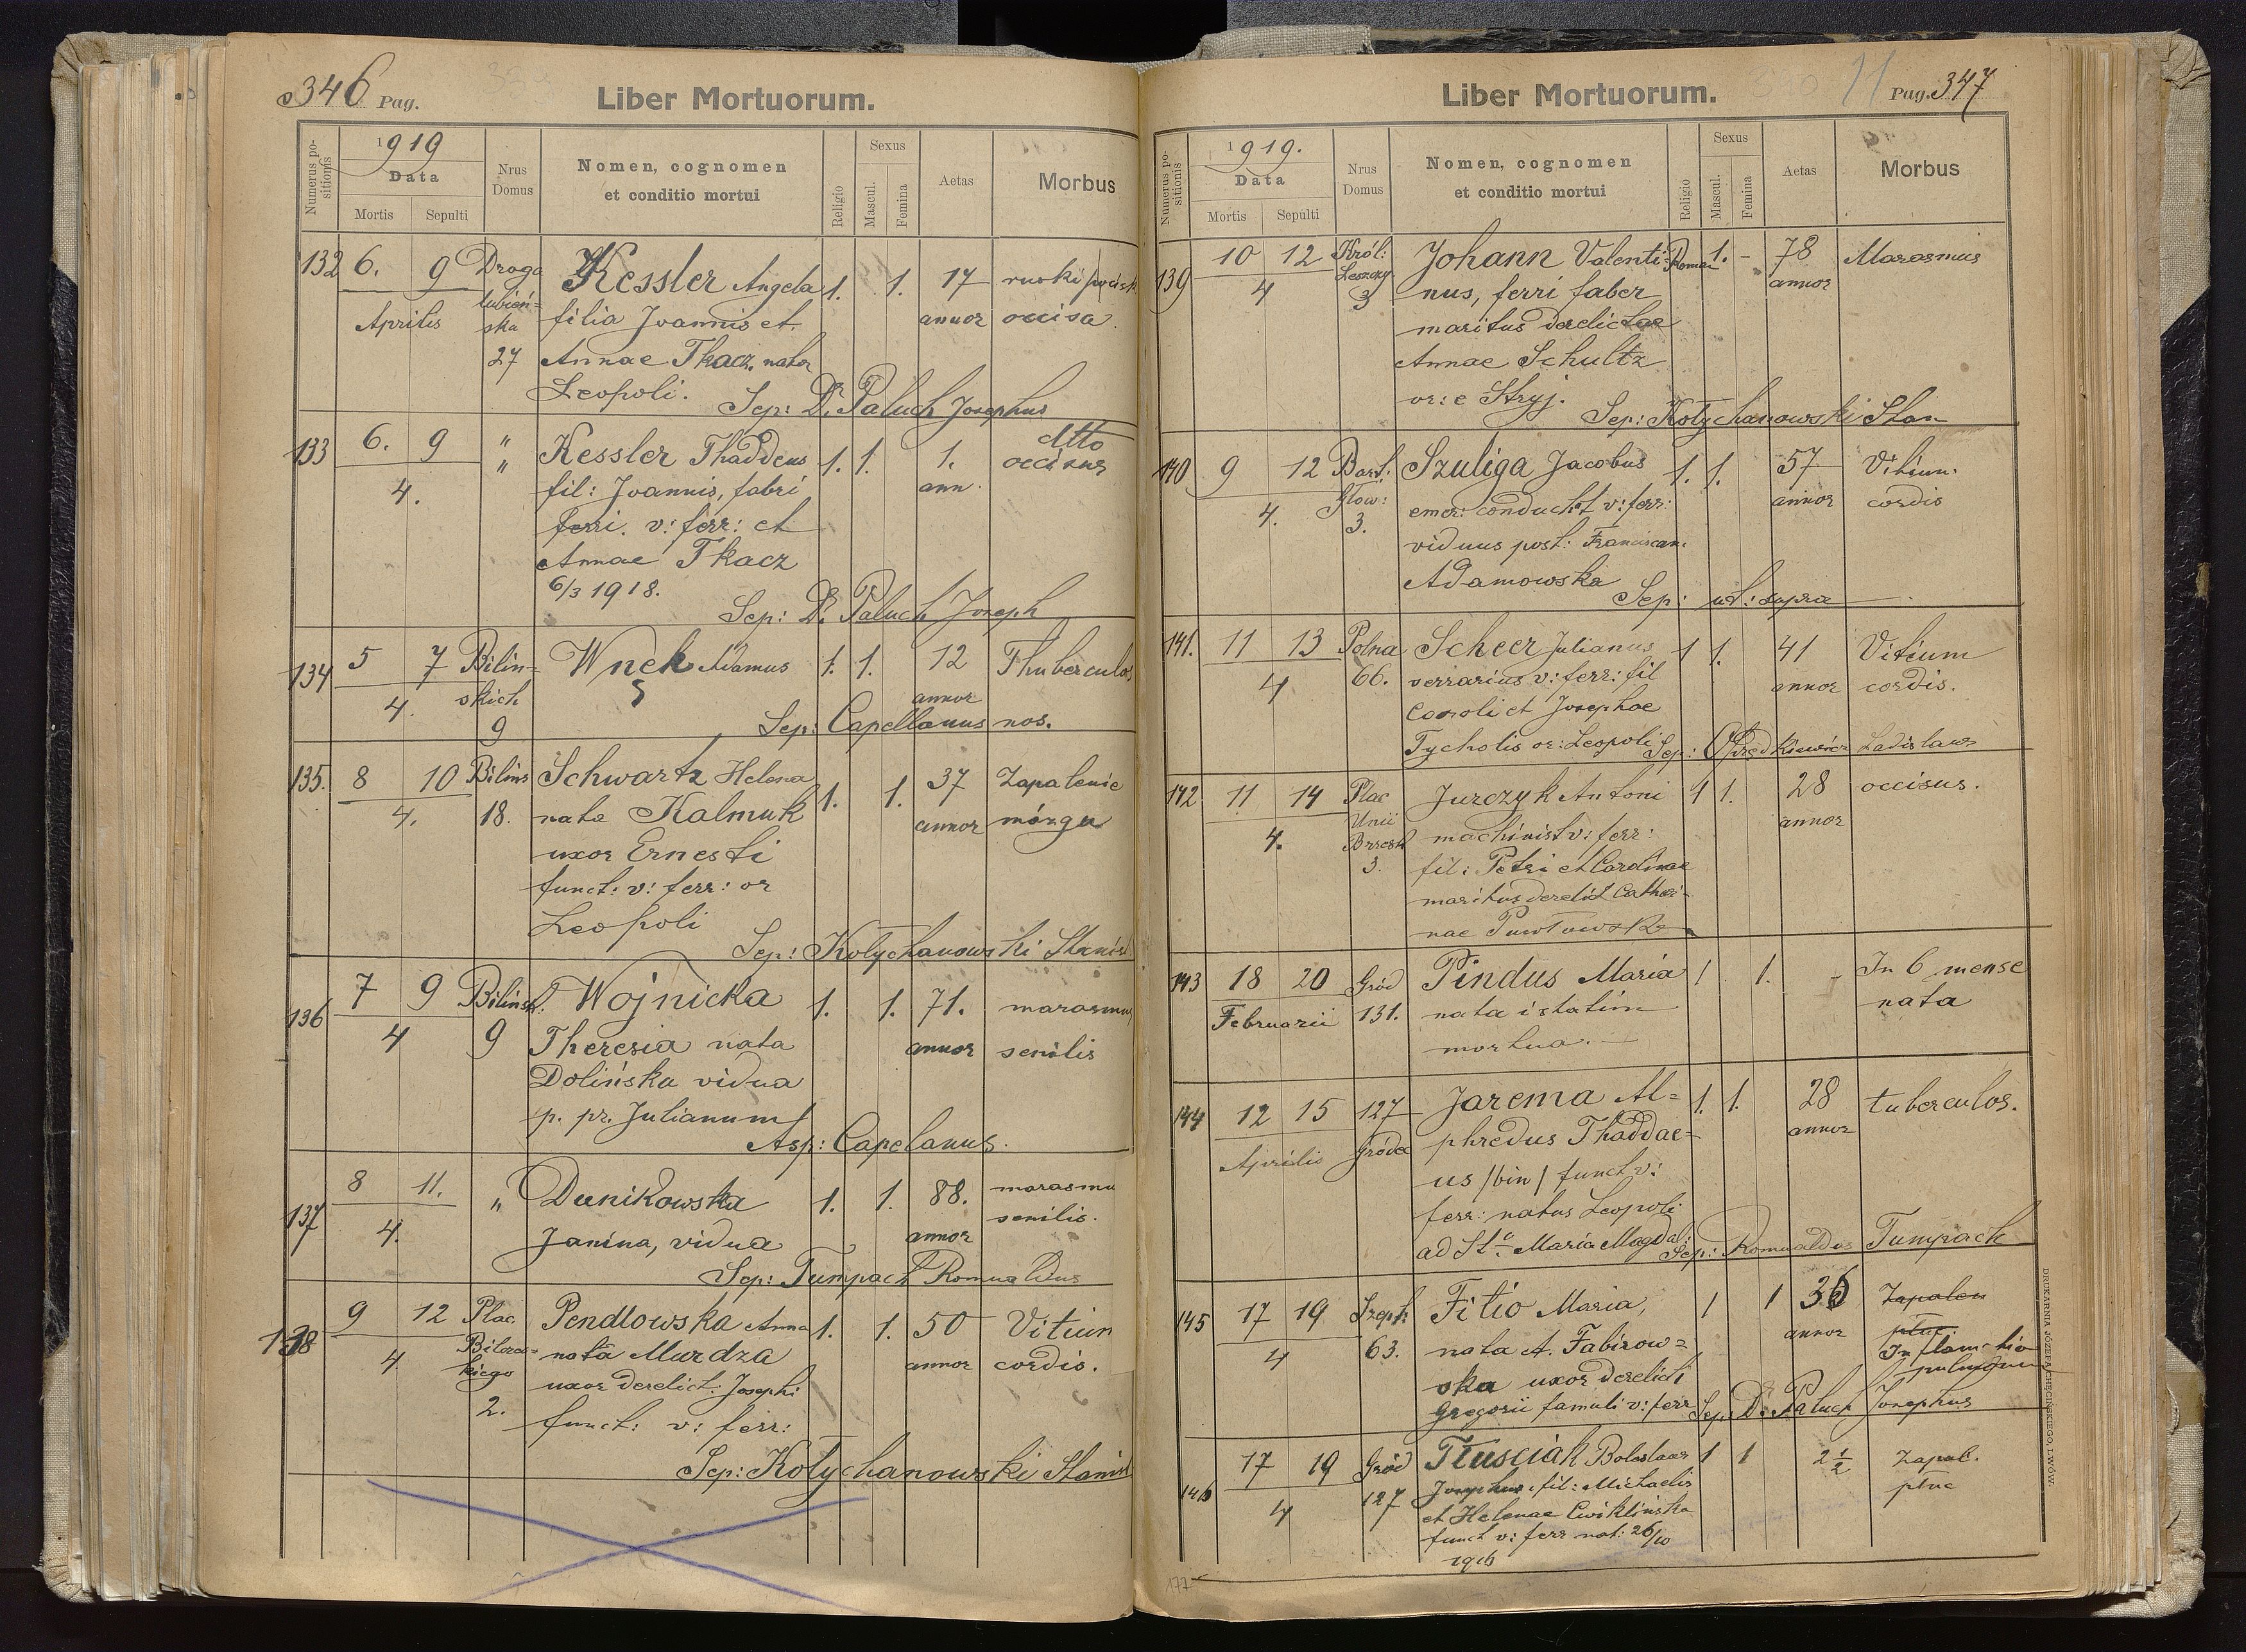 346 Pag.
Liber Mortuorum.
Numerus positionis
1919
Data
Mortis
Sepulti
Nrus Domus
Nomen, cognomen
et conditio mortui
Religio
Sexus
Mascul.
Femina
Aetas
Morbus
132 6. 9 Droga Kessler Angela 1. 1. 17 ruski pocisk
Aprilis lubień= filia Joannis et annor occisa
ska
27 Annae Tkacz. nata
Leopoli.
Sep: Dr. Paluch Josephus
133 6. 9 " Kessler Thaddeus 1. 1. 1. dtto
" occisus
4. fil: Joannis, fabri ann.
ferri. v: ferr: et
Annae Tkacz
6/3 1918.
Sep: Dr. Paluch Joseph
134 5 7 Bilin= Wnek Adamus 1. 1. 12 Thuberculos
4. skich annor
9 Sep: Capellanus nos.
135. 8 10 Bilins Schwartz Helena 1. 1. 37 Zapalenie
4. 18. nata Kalmuk annor mózgu
uxor Ernesti
funct: v: ferr: or
Leopoli
Sep: Kotychanowski Stanisl
136 7 9 Bilinsk. Wojnicka 1. 1. 71. marasmus
4 9 Theresia nata annor senilis
Dolińska vidua
p. pr. Julianum
Asp: Capelanus.
137 8 11. " Dunikowska 1. 1. 88. marasmu
senilis.
4. Janina, vidua annor
Sep: Tumpach Romualdus
138 9 12 Plac. Pendlowska Anna 1. 1. 50 Vitium
4. Bilczew= nata Murdza annor cordis.
kiego
uxor derelict: Josephi
2. funct: v: ferr:
Sep: Kotychanowski Stanisl
Liber Mortuorum.
11
Pag. 347
Numerus positionis
1919.
Data
Mortis
Sepulti
Nrus Domus
Nomen, cognomen
et conditio mortui
Religio
Sexus
Mascul.
Femina
Aetas
Morbus
139 10 12 Król: Johann Valenti= Roman 1. - 78 Marasmus
4 Leszczy 3 nus, ferri faber annor
maritus derelictae
Annae Schultz
or: e Stryj.
Sep: Kotychanowski Stan
140 9 12 Bart. Szuliga Jacobus 1. 1. 57 Vitium.
4. Głow: 3. emer: conduct v: ferr: annor cordis
viduus post: Franciscam.
Adamowska
Sep: ut: supra
141. 11 13 Polna Scheer Julianus 1 1. 41 Vitium
4 66. serrarius v: ferr: fil annor cordis.
Caroli et Josephae
Tycholis or: Leopoli Sep: Ladislaus
142 11 14 Plac Jurczyk Antoni 1 1. 28 occisus.
4. Unii Brzesk 3. machinist v: ferr: annor
fil: Petri et Carolinae
maritus derelict Cathari-
nae
143 18 20 Gród Pindus Maria 1 1. - In 6 mense
Februarii 131. nata i statim nata
mortua. -
144 12 15 127 Jarema Al= 1. 1. 28 tuberculos.
Aprilis Gródec phredus Thaddae= annor
us /bin/ funct v:
ferr: natus Leopoli
ad Sta. Maria Magdal:
Sep: Romualdus Tumpach
145 17 19 Szept Fitio Maria, 1 1 36 Zapalen
4 63. nata A. Fabirow= annor płuc.
Inflamatio
ska uxor derelict pulmonum
Gregorii famuli v: ferr Sep: Dr. Paluch Josephus
146 17 19 Gród Tłusciak Boleslaus 1 1 2 1/2 Zapal.
4 127 Josephus, fil: Michaelis płuc
et Helenae Cwiklińska
funct v: ferr nat: 26/10
1916
177
DRUKARNIA JÓZEFA CHĘCIŃSKIEGO, LWÓW.